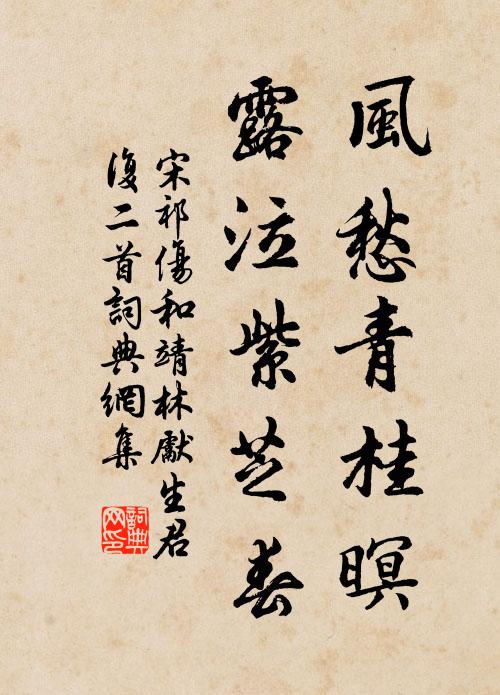 風愁青桂暝
露泣紫芝春
宋祁傷和靖林獻生君
復二首詞典網集
詞典
网印